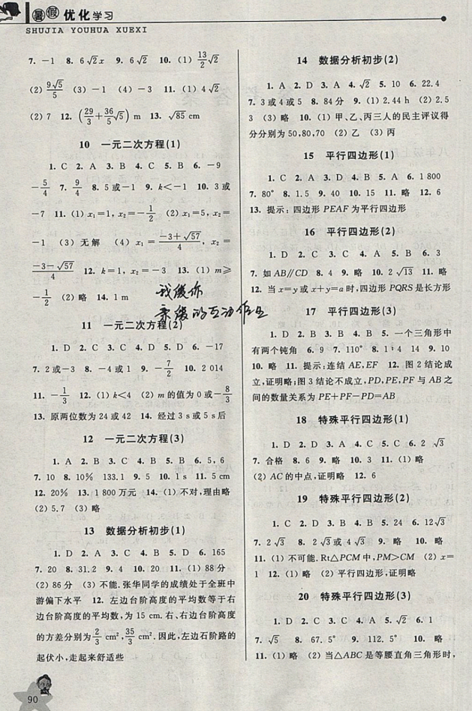 暑假 优化学习
SHUJIA YOUHUA XUEXI
7. -1  8. 6√2x  9. 6√2  10. (1) 13√2/2
(2) 9√5/5  (3) -1  (4) -3  11. (1) 4√2
(2) 7  12. (29/3+36/5√5) m  13. √85 cm
10  一元二次方程(1)
1. C  2. A  3. A  4. C  5. B  6. -9
-5/4  7. 9/4  8. 5或-1  9. k<-1  10. 3或
-7  11. (1) x₁=1, x₂=-1/2  (2) x₁=5, x₂=
-1  (3) 无解  (4) x₁=(-3+√57)/4, x₂=
(-3-√57)/4  12. k=1, x₂=-3  13. (1) m≥
-1/2  (2) 略  14. 1 m
11  一元二次方程(2)
1. D  2. C  3. D  4. C  5. -1  6. -17
7. 2或-3  8. -4或1  9. -7/2  10. 2 014
11. -1/3  12. (1) k<4  (2) m的值为0或-8/3
13. 原两位数为24或42  14. 经过3 s或5 s后
12  一元二次方程(3)
1. A  2. B  3. C  4. B  5. B  6. 5,6
7. 10  8. 10%  133.1  9. 5  10. 1 s  11. 5 cm
12. 20%  13. 1 800万元  14. (1) 不对,理由略
(2) 5.7  (3) 略
13  数据分析初步(1)
1. D  2. A  3. C  4. D  5. D  6. 165
7. 20  8. 31.2  9. 4  10. 20  11. (1) 88分
(2) 86分  (3) 不能.张华同学的成绩处于全班中
游偏下水平  12. 左边台阶高度的平均数等于右
边台阶高度的平均数,为15 cm.右、右边台阶高度
的方差分别为2/3 cm²,35/3 cm².因此,左边石阶路的
起伏小,走起来舒适些
90
14  数据分析初步(2)
1. A  2. D  3. A  4. √2  5. 10  6. 22.4
7. 3或4或5  8. 84分  9. (1) 2.44 h  (2) 2.5
3  (3) 略  10. (1) 甲、乙、丙三人的民主评议得
分分别为50,80,70  (2) 乙  (3) 丙
15  平行四边形(1)
1. B  2. D  3. C  4. D  5. A  6. 1 800
7. 80°  8. 1.5  9. 40  10. 15  11. 略  12. 6
13. 提示:四边形PEAF为平行四边形
16  平行四边形(2)
1. B  2. D  3. C  4. A  5. B  6. 3
7. 如AB∥CD  8. 4  9. 略  10. 2√13  11. 略
12. 当x=y或x+y=a时,四边形PQRS是长方形
17  平行四边形(3)
1. B  2. D  3. A  4. B  5. 一个三角形中
有两个钝角  6. 9  7. 110°  8. 1;4  14  9. 10
10. 略  11. 提示:连结AE,EF  12. 图2结论成
立,证明略;图3结论不成立,PD,PE,PF与AB之
间的数量关系为PE+PF-PD=AB
18  特殊平行四边形(1)
1. D  2. D  3. A  4. C  5. C  6. 2√3
7. 合格  8. 6  9. 略  10. 3  11. (1) 略
(2) AC的中点,证明略  12. 6
19  特殊平行四边形(2)
1. D  2. A  3. B  4. C  5. 24  6. 12√3
7. 2√3  8. 2√3或4√3  9. 略  10. 略
11. (1) 不可能. Rt△PCM中,PM>CM  (2) x=
1  12. (1) 略  (2) 平行四边形,证明略
20  特殊平行四边形(3)
1. C  2. B  3. D  4. A  5. √2  6. 1
7. √5  8. 67.5°  9. 112.5°  10. 略
11. (1) 略  (2) 当△ABC是等腰直角三角形时,